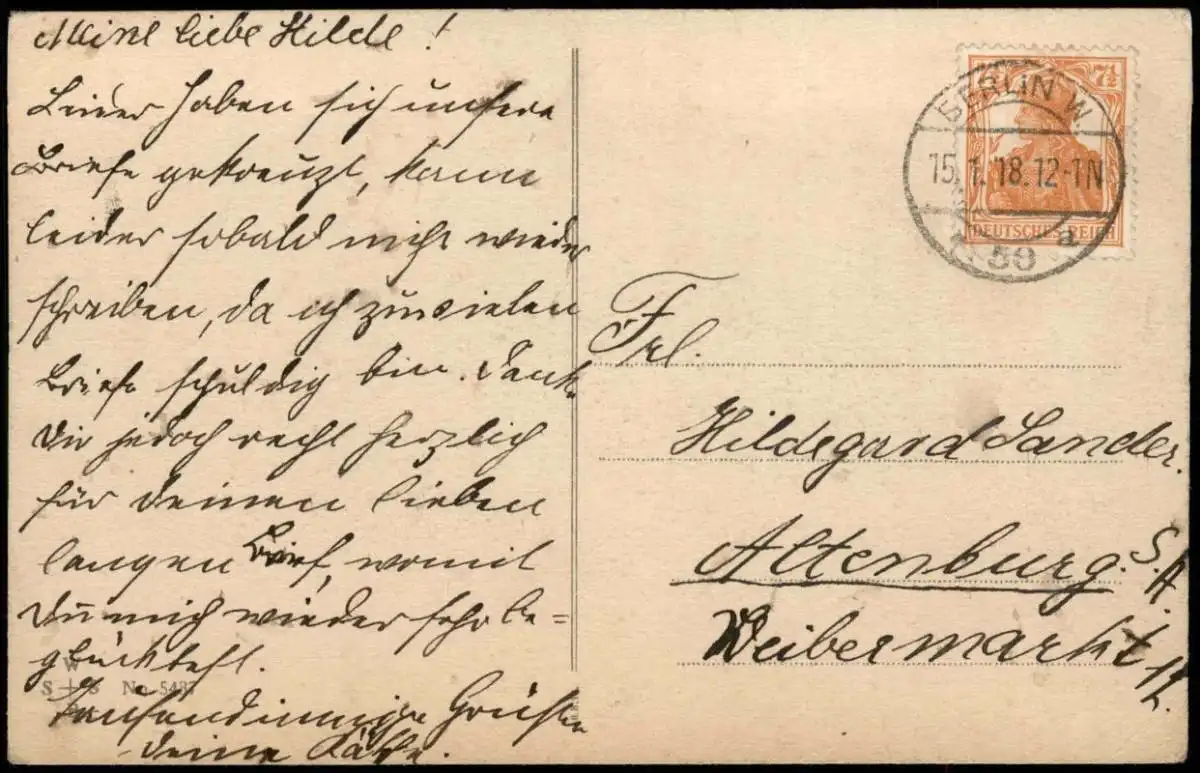 Meine liebe Hilde!
Leider haben sich unsere
Briefe gekreuzt, kann
leider sobald nicht wieder
schreiben, da ich zuvielen
Briefe schuldig bin. Dank
Dir jedoch recht herzlich
für Deinen lieben
langen Brief, womit
Du mich wieder sehr be=
glücktest.
Tausend innige Grüße
Deine Käthe.
W
S+S
No 5487
BERLIN W.
15.1.18.12-1N
50 a
7½
DEUTSCHES REICH
Frl.
Hildegard Sander.
Altenburg. S. A.
Weibermarkt 12.